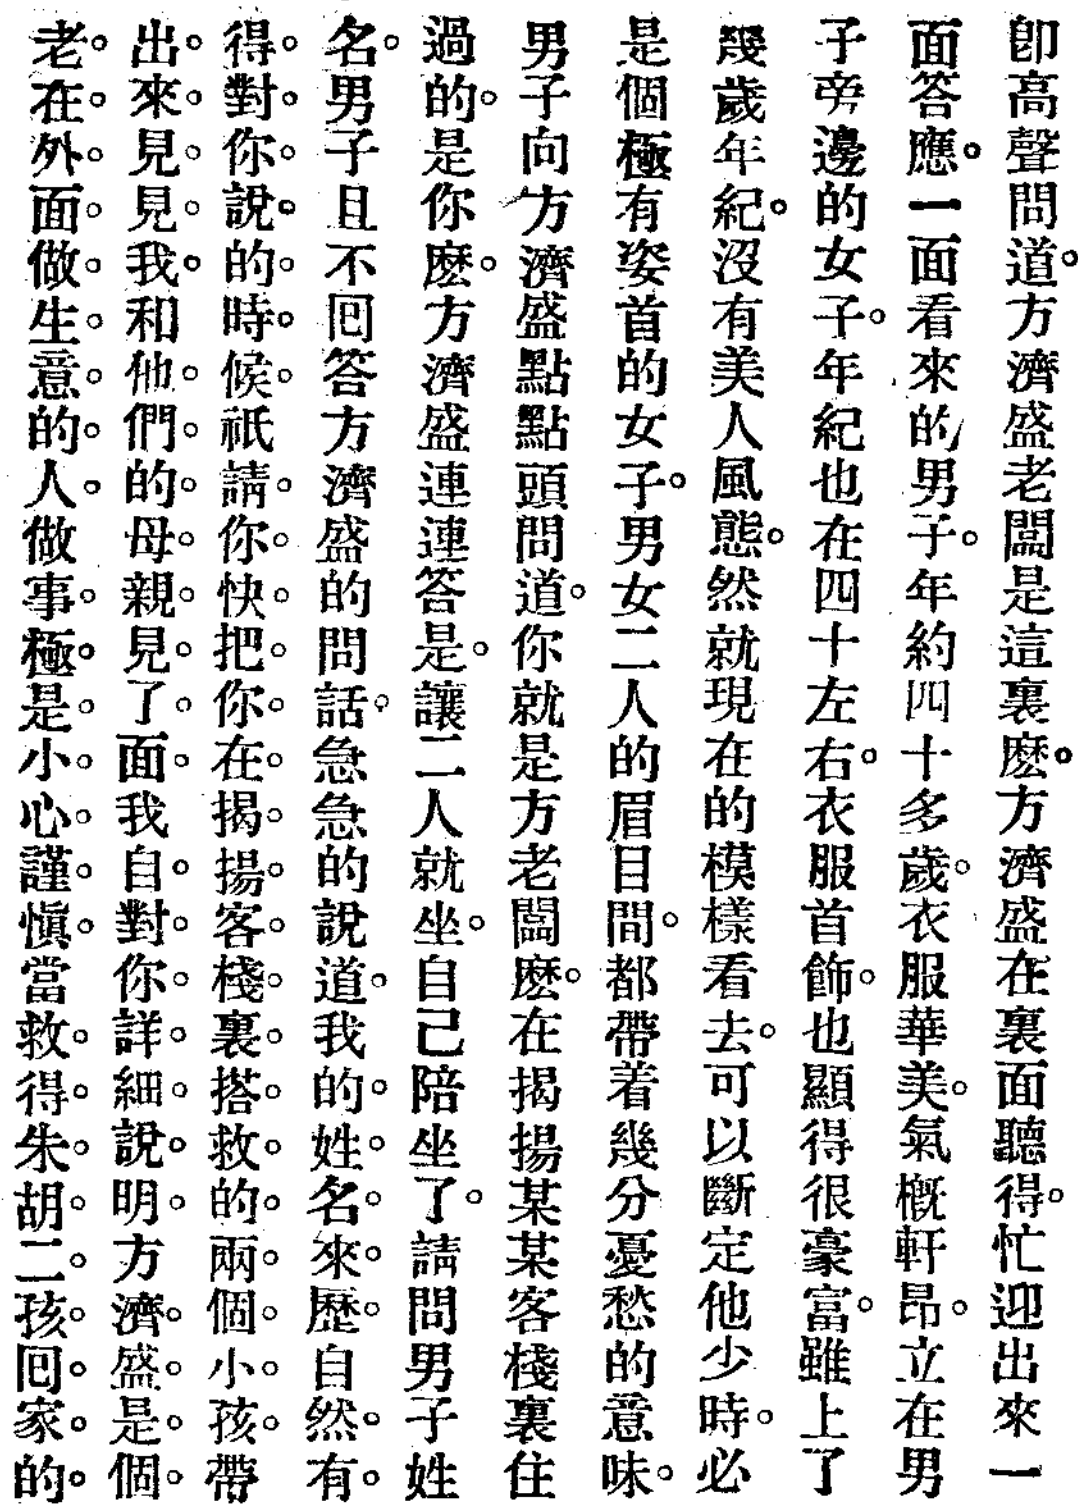 卽高聲問道。方濟盛老闆是這裏麽。方濟盛在裏面聽得。忙迎出來一
面答應。一面看來的男子。年約四十多歲。衣服華美。氣槪軒昂。立在男
子旁邊的女子。年紀也在四十左右。衣服首飾。也顯得很豪富。雖上了
幾歲年紀。沒有美人風態。然就現在的模樣看去。可以斷定他少時。必
是個極有姿首的女子。男女二人的眉目間。都帶着幾分憂愁的意味。
男子向方濟盛點點頭問道。你就是方老闆麽。在揭揚某某客棧裏住
過的。是你麽。方濟盛連連答是。讓二人就坐。自己陪坐了。請問男子姓
名。男子且不囘答方濟盛的問話。急急的說道。我的。姓。名。來。歷。自然。有。
得。對。你。說。的。時。候。祇請。你。快。把。你。在。揭。揚。客。棧。裏。搭。救。的。兩。個。小。孩。帶
出。來。見。見。我。和他。們。的。母。親。見。了。面。我自。對。你。詳。細。說。明。方濟。盛。是。個。
老。在。外。面。做。生。意。的。人。做事。極。是。小。心。謹。愼。當救。得。朱。胡。二。孩。囘。家。的。